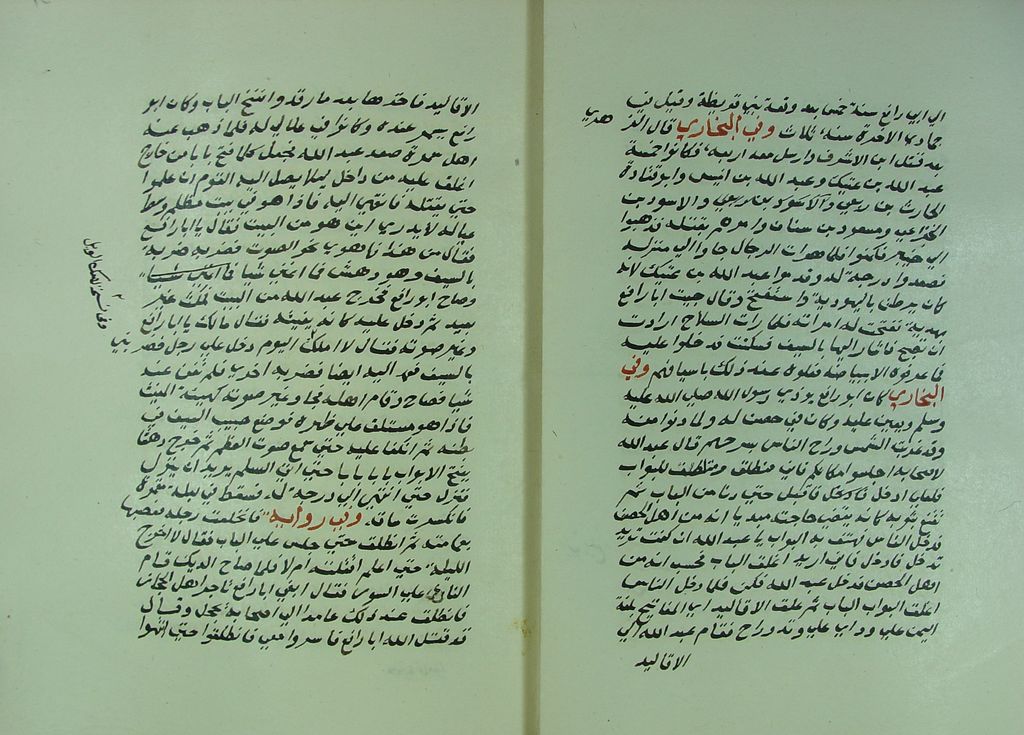 الى ابي رافع سنة خمس بعد وقعة بني قريظة وقيل في
جمادى الاخرة سنة ثلاث وفي البخاري قال الزهري
بعد قتل ابن الاشرف وارسل معه اربعة فكانوا خمسة
عبد الله بن عتيك وعبد الله بن انيس وابو قتادة
الحارث بن ربعي والاسود بن
الخزاعي ومسعود بن سنان وامرهم بقتله فذهبوا
الى خيبر فكمنوا فلما هدات الرجال جاوا الى منزله
فصعدوا درجة له وقدموا عبد الله بن عتيك لانه
كان يرطن باليهودية واستفتح وقال جيت ابا رافع
بهدية ففتحت له امراته فلما رات السلاح ارادت
ان تصيح فاشار اليها بالسيف فسكتت فدخلوا عليه
فما عرفوه الا ببياضه فعلوه عند ذلك باسيافهم وفي
البخاري كان ابو رافع يوذي رسول الله صلى الله عليه
وسلم ويعين عليه وكان في حصن له ولما دنوا منه
وقد غربت الشمس وراح الناس بسرحهم قال عبد الله
لاصحابه اجلسوا مكانكم فاني منطلق ومتلطف للبواب
لعلي ادخل فاقبل حتى دنا من الباب ثم
تقنع بثوبه كانه يقضي حاجته وقد
دخل الناس فهتف به البواب يا عبد الله ان كنت تريد
تدخل فادخل فاني اريد اغلق الباب فحسب انه من
اهل الحصن فدخل عبد الله فكمن فلما دخل الناس
اغلق البواب الباب ثم علق الاقاليد اي المفاتيح
على وقام عبد الله الى
الاقاليد
الاقاليد فاخذها بعد ما رقدوا ففتح الباب وكان ابو
رافع يسمر عنده وكانوا في علالي له فلما ذهب عنه
اهل سمره صعد عبد الله فجعل كلما فتح بابا من خارج
اغلق عليه من داخل ليلا يصل اليه القوم ان علموا
حتى يقتله فانتهى اليه فاذا هو في بيت مظلم وسط
عياله لا يدري اين هو من البيت فقال يا ابا رافع
فقال من هذا فاهوى نحو الصوت فضربه ضربة
بالسيف وهو دهش فما اغنى شيا
وصاح ابو رافع فخرج عبد الله من البيت فمكث غير
بعيد ثم دخل عليه كانه يغيثه فقال مالك يا ابا رافع
وغير صوته فقال لامك اليوم دخل علي رجل فضربني
بالسيف فعمد اليه ايضا فضربه اخرى فلم تغن عنه
شيا فصاح وقام اهله فجا وغير صوته كهيئة المغيث
فاذا هو مستلق على ظهره فوضع ضبيب السيف في
بطنه ثم اتكا عليه حتى سمع صوت العظم ثم خرج دهشا
يفتح الابواب بابا بابا حتى اتى السلم يريد ان ينزل
فنزل حتى انتهى الى درجة له فسقط في ليلة مقمرة
فانكسرت ساقه وفي رواية فانخلعت رجله فعصبها
بعمامته ثم انطلق حتى جلس على الباب فقال لا اخرج
الليلة حتى اعلم اقتلته ام لا فلما صاح الديك قام
الناعي على السور فقال انعي ابا رافع تاجر اهل الحجاز
فانطلقت عند ذلك الى اصحابه وقال
قد قتل الله ابا رافع فانطلقوا حتى انتهوا